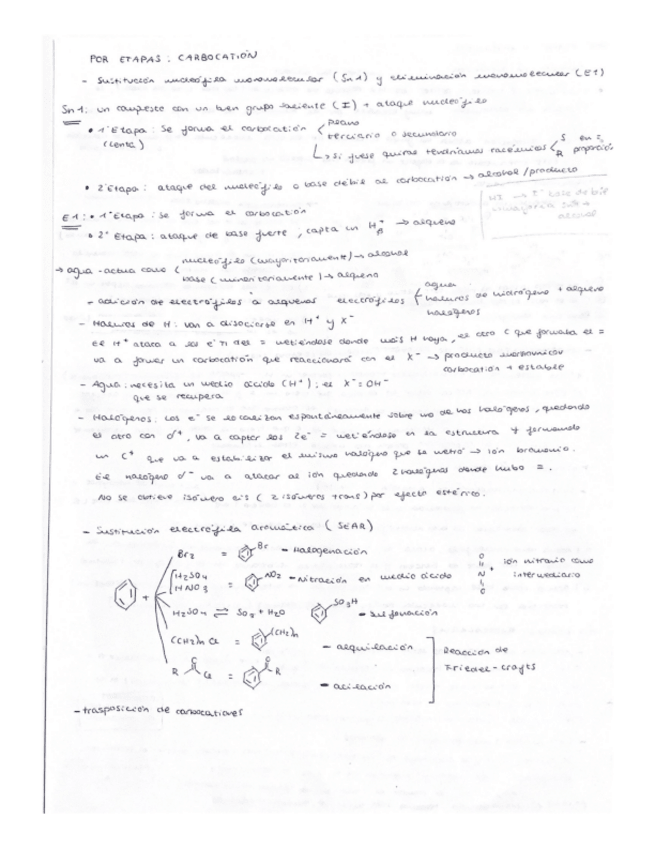 POR ETAPAS: CARBOCATIÓN
- Sustitución nucleófila monomolecular (Sn1) y eliminación monomolecular (E1)
Sn1: un compuesto con un buen grupo saliente (I) + ataque nucleófilo
• 1ª Etapa: Se forma el carbocatión plano
(lenta) terciario o secundario
→ si fuese quiral tendríamos racémicos S R en = proporción
• 2ª Etapa: ataque del nucleófilo o base débil al carbocatión → alcohol/producto
E1: • 1ª Etapa: se forma el carbocatión
• 2ª Etapa: ataque de base fuerte, capta un Hβ → alqueno
→ agua - actúa como nucleófilo (mayoritariamente) → alcohol
base (minoritariamente) → alqueno
- adición de electrófilos a alquenos electrófilos agua
haluros de hidrógeno + alqueno
halógenos
- Haluros de H: van a disociarse en H+ y X-
el H+ ataca a los e- π del = metiéndose donde más H haya, el otro C que formaba el =
va a formar un carbocatión que reaccionará con el X- → producto markovnikov
carbocatión + estable
- Agua: necesita un medio ácido (H+); el X-=OH-
que se recupera
- Halógenos: Los e- se localizan espontáneamente sobre uno de los halógenos, quedando
el otro con δ+, va a captar los 2e- = metiéndose en la estructura y formando
un C+ que va a estabilizar el mismo halógeno que se metió → ión bromonio.
El halógeno δ- va a atacar al ión quedando 2 halógenos donde hubo =.
No se obtiene isómero cis (2 isómeros trans) por efecto estérico.
- Sustitución electrófila aromática (SEAR)
Br2 = Br - Halogenación
H2SO4
HNO3 = NO2 - Nitración en medio ácido O N O + ión nitronio como intermediario
H2SO4 ⇌ SO3 + H2O SO3H - Sulfonación
(CH2)n Cl = (CH2)n - alquilación
R O Cl = O R - acilación
Reacción de
Friedel-crafts
- trasposición de carbocationes